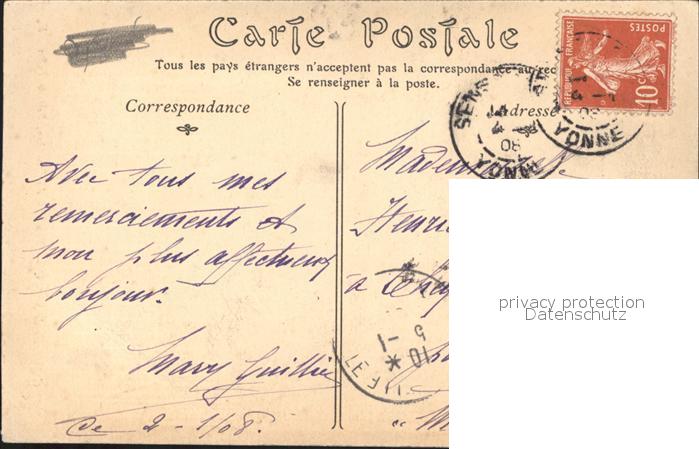 Carte Postale
Tous les pays étrangers n'acceptent pas la correspondance au rec
Se renseigner à la poste.
Correspondance
Adresse
Avec tous mes
remerciements et
mon plus affectueux
bonjour.
Mary Guillier
Ce 2-1/08.
Mademoiselle
Henri
à
REPUBLIQUE FRANÇAISE
POSTES
10c
SENS
YONNE
08
YONNE
5 - 1
10 *
privacy protection
Datenschutz